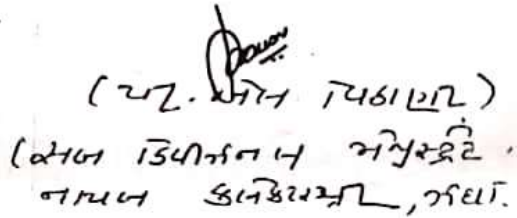 (યુ. એન પિઠાણી)
(સબ ડિવીઝનલ મેજીસ્ટ્રેટ.
નાયબ કલેકટરશ્રી,